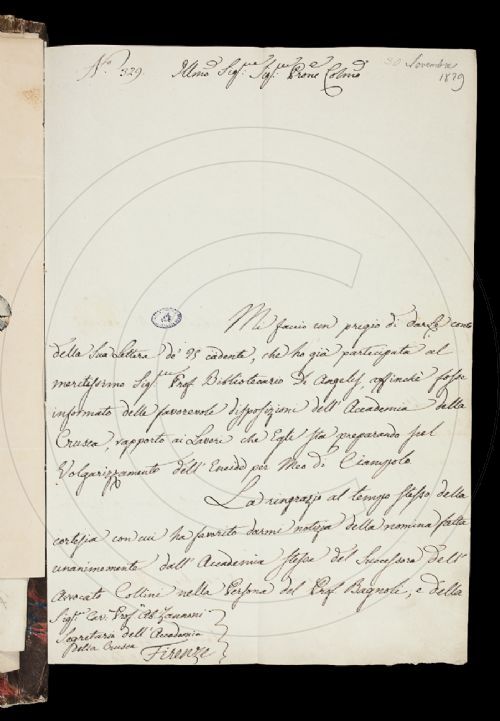 N.° 329. Illmo Sig.re Sig.re Prone Colmo
30 Novembre
1829
Mi faccio con pregio di darLe conto
della Sua Lettera de' 25 cadente, che ho già partecipata al
meritissimo Sig.re Prof. Bibliotecario De Angelis, affinchè fosse
informato delle favorevoli disposizioni dell'Accademia della
Crusca, rapporto ai Lavori che Egli sta preparando pel
Volgarizzamento dell'Eneide per Meo di Ciampolo.
La ringrazio al tempo stesso della
cortesia con cui ha favorito darmi notizia della nomina fatta
unanimemente dall'Accademia stessa del Successore dell'
Avvocato Collini nella Persona del Prof. Bagnoli, e della
Sig.re Cav. Prof. Ab. Zannoni
Segretario dell'Accademia
della Crusca
Firenze